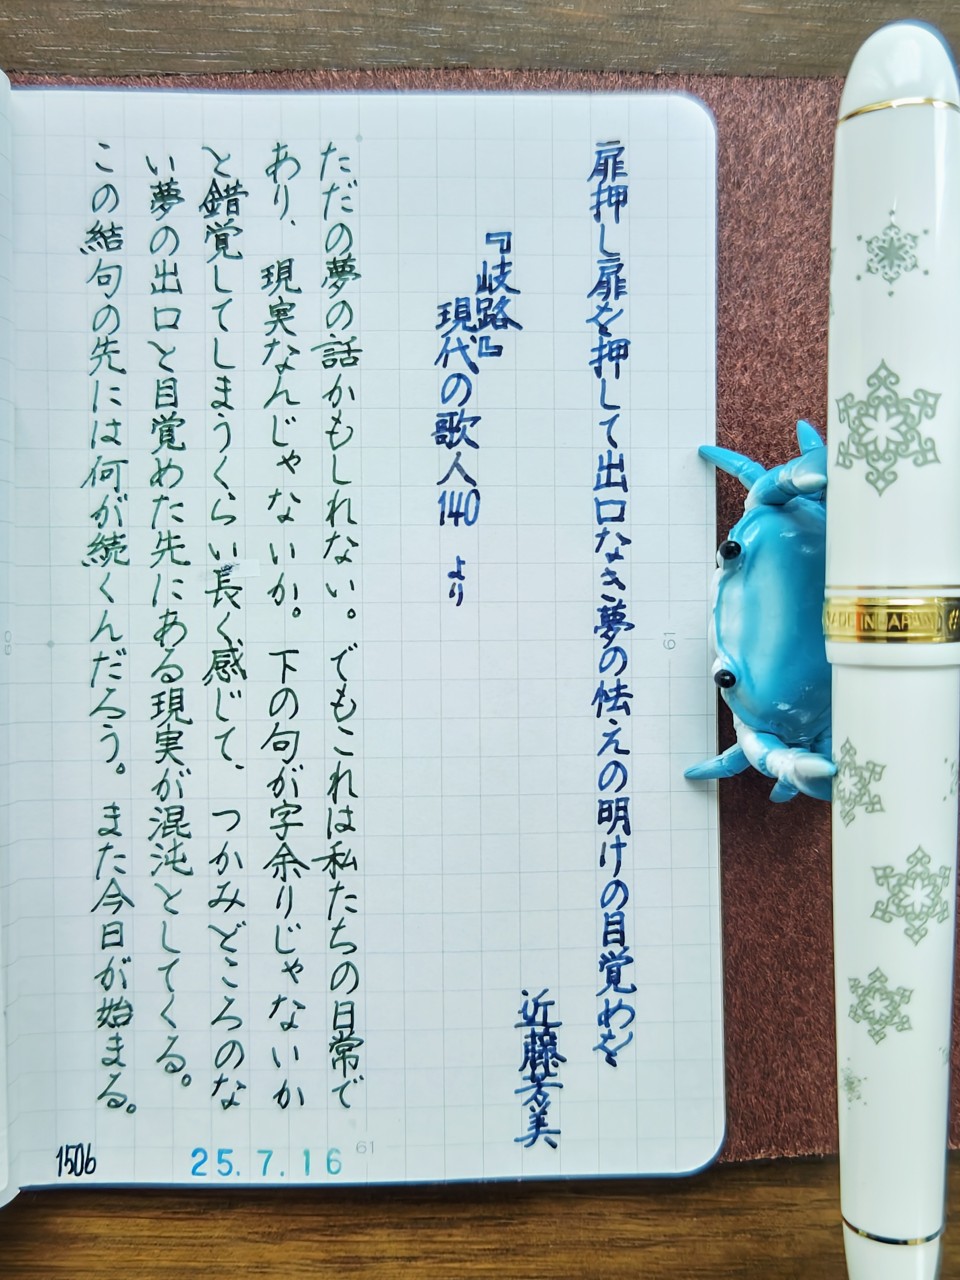 扉押し扉を押して出口なき夢の怯えの明けの目覚めを
近藤芳美
『岐路』
現代の歌人140 より
ただの夢の話かもしれない。でもこれは私たちの日常で
あり、現実なんじゃないか。下の句が字余りじゃないか
と錯覚してしまうくらい長く感じて、つかみどころのな
い夢の出口と目覚めた先にある現実が混沌としてくる。
この結句の先には何が続くんだろう。また今日が始まる。
1506
25.7.16
61
61
MADE IN JAPAN